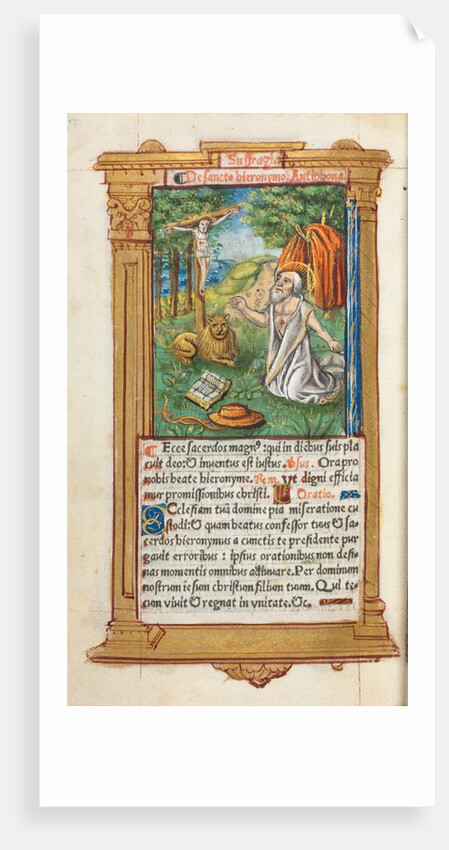 Suffragia
¶ De sancto hieronymo. Antiphona.
¶ Ecce sacerdos magnꝰ : qui in diebus suis pla
cuit deo: & inventus est iustus. Vsus. Ora pro
nobis beate hieronyme. Resp. Vt digni efficia
mur promissionibus christi. ¶ Oratio.
Ecclesiam tuā domine pia miseratione cu
stodi: & quam beatus confessor tuus & sa
cerdos hieronymus a cunctis te presidente pur
gauit erroribus : ipsius orationibus non desi
nas momentis omnibus adiuuare. Per dominum
nostrum iesum christum filium tuum. Qui te
cum viuit & regnat in vnitate. &c.